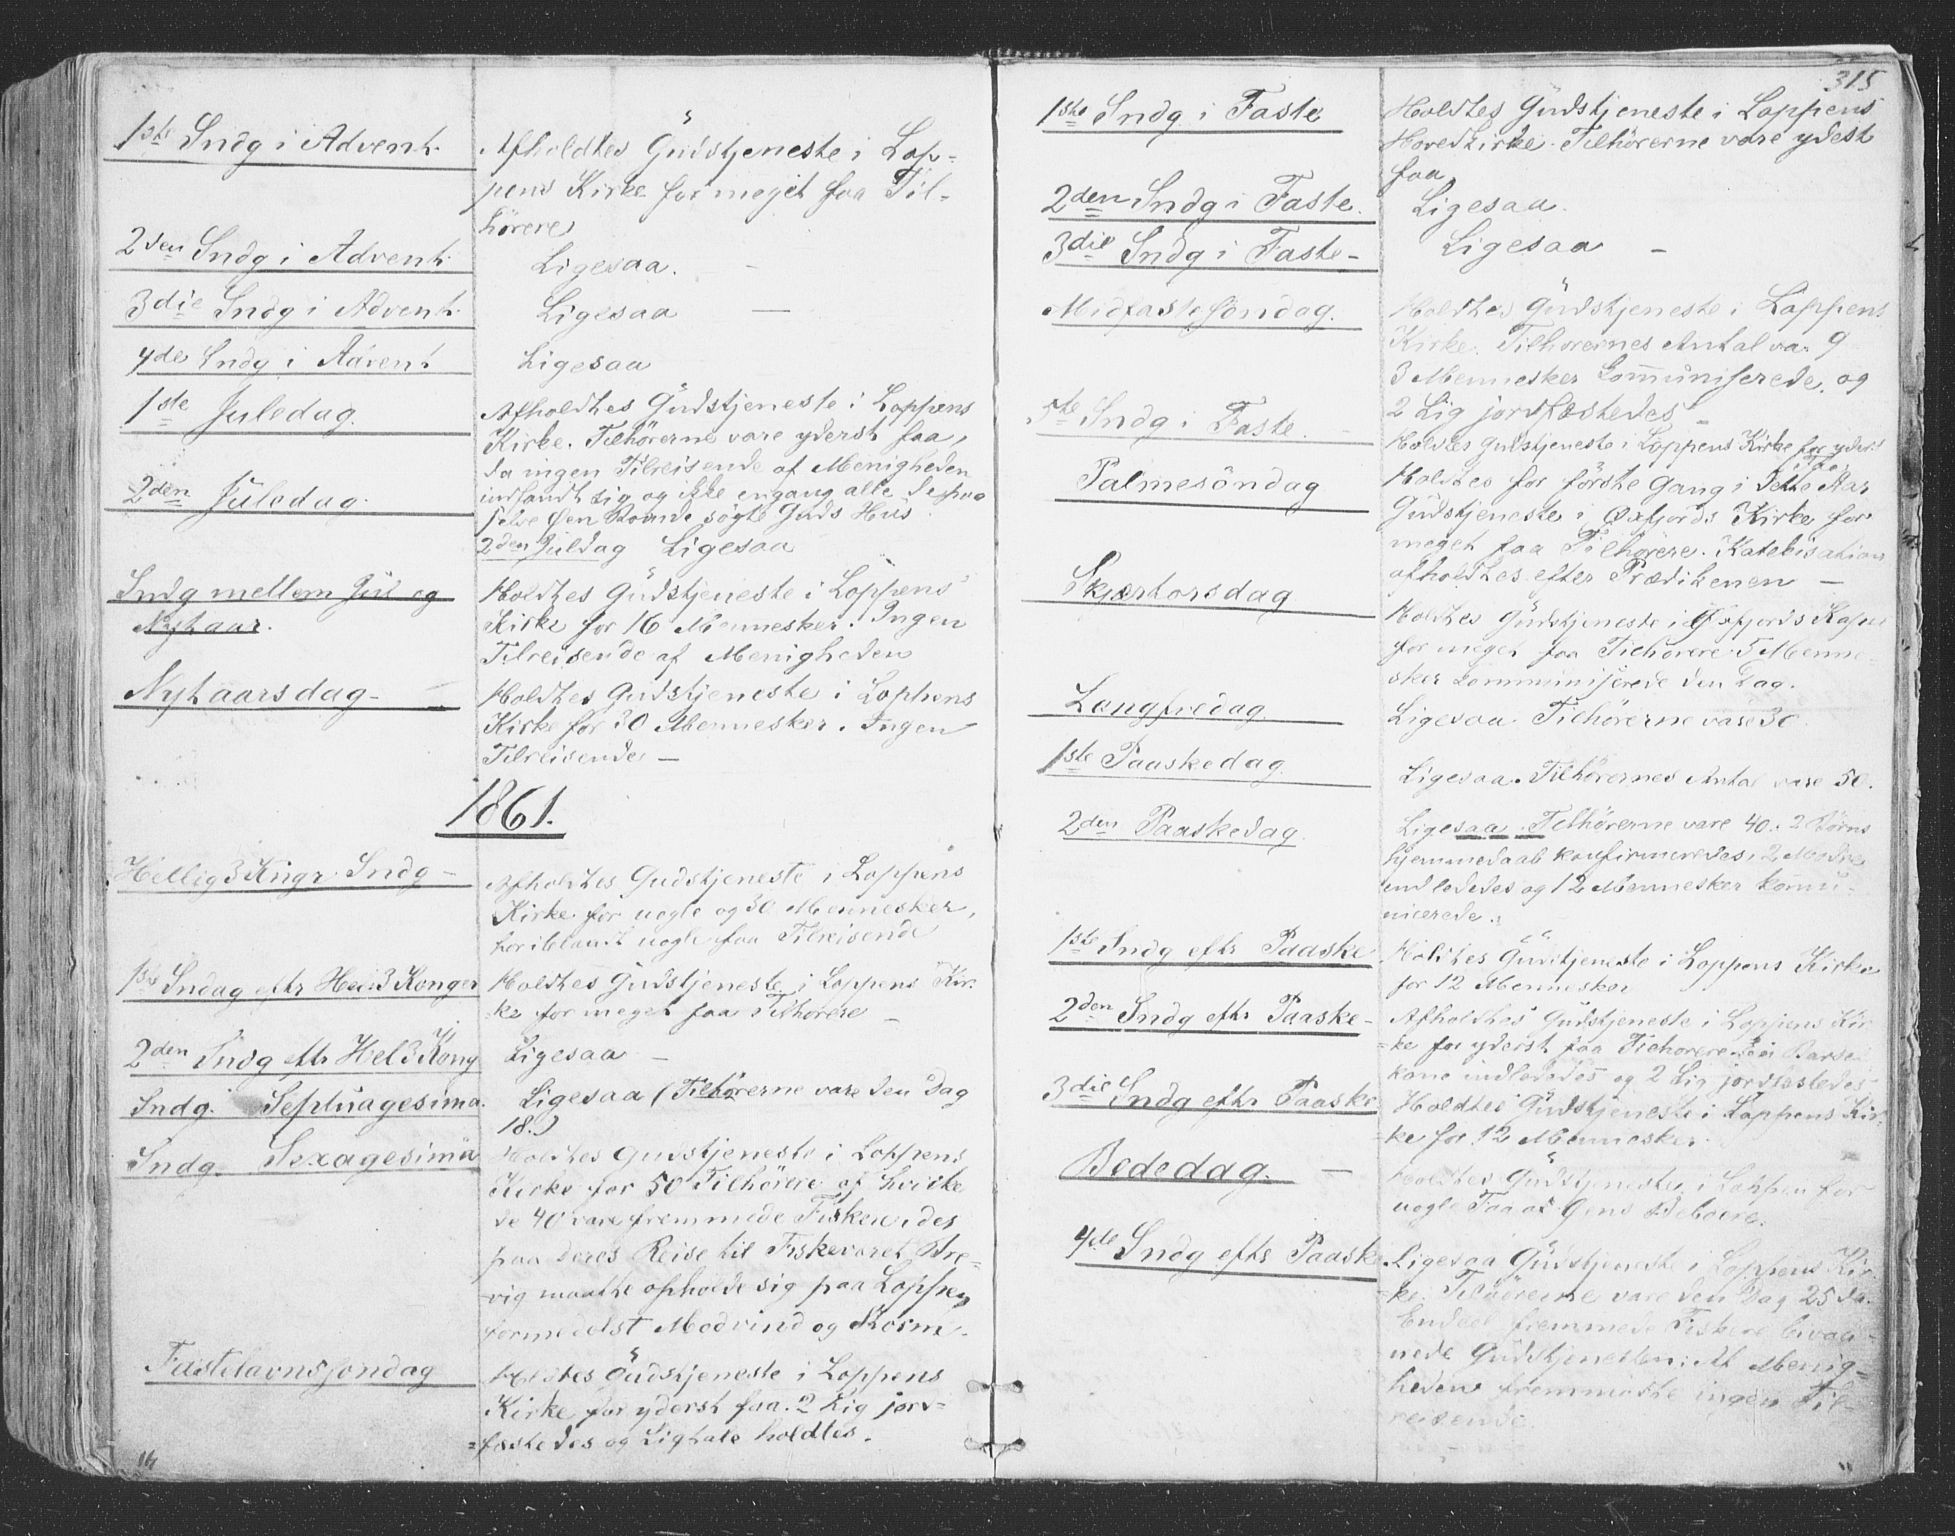 1ste Sndg i Advent.
Afholdtes Gudstjeneste i Lop-
pens Kirke for meget faa Til-
hørere
2den Sndg i Advent.
Ligesaa. -
3die Sndg i Advent.
Ligesaa -
4de Sndg i Advent
Ligesaa
1ste Juledag.
Afholdtes Gudstjeneste i Loppens
Kirke. Tilhörerne vare yderst faa,
da ingen Tilreisende af Menigheden
indfandt sig og ikke engang alle de paa
selve Øen Boende søgte Guds Hus.
2den Juledag.
2den Juldag Ligesaa
Sndg mellem Jul og
Nytaar.
Holdtes Gudstjeneste i Loppens
Kirke for 16 Mennesker. Ingen
Tilreisende af Menigheden
Nytaarsdag -
Holdtes Gudstjeneste i Loppens
Kirke for 30 Mennesker. Ingen
Tilreisende -
1861.
Hellig 3 Kngr. Sndg -
Afholdtes Gudstjeneste i Loppens
Kirke for nogle og 30 Mennesker,
heriblandt nogle faa Tilreisende
1ste Sndag eftr Hel 3 Konger
Holdtes Gudstjeneste i Loppens Kir-
ke for meget faa Tilhörere -
2den Sndg eftr Hel 3 Kong
Ligesaa -
Sndg. Septuagesima.
Ligesaa (Tilhörerne vare den Dag
18.)
Sndg. Sexagesima
Holdtes Gudstjeneste i Loppens
Kirke for 50 Tilhörere af hvilke
de 40 vare fremmede Fiskere, der
paa deres Reise til Fiskeværet Bre-
vig maatte opholde sig paa Loppen
formedelst Modvind og Storm.
Fastelavnssöndag
Holdtes Gudstjeneste i Loppens
Kirke for yderst faa. 2 Lig jord-
=fæstedes og Ligtale holdtes.
315
1ste Sndg. i Faste
Holdtes Gudstjeneste i Loppens
Hovedkirke. Tilhörerne vare yderst
faa
2den Sndg i Faste.
Ligesaa.
3die Sndg i Faste -
Ligesaa -
Midfastesöndag.
Holdtes Gudstjeneste i Loppens
Kirke. Tilhorernes Antal var 9
3 Mennesker kommuniserede, og
2 Lig jordfæstedes
5te Sndg. i Faste.
Holdtes Gudstjeneste i Loppens Kirke for yderst
Palmesöndag
Holdtes for förste Gang i dette Aar
Gudstjeneste i Øxfjords Kirke for
meget faa Tilhörere. Katekisation
afholdtes efter Prædikenen -
Skjærtorsdag
Holdtes Gudstjeneste i Øxfjords Kapel
for meget faa Tilhörere. 5 Menne-
sker kommuniserede den Dag.
Langfredag.
Ligesaa. Tilhörerne vare 30.
1ste Paaskedag.
Ligesaa. Tilhörernes Antal vare 50.
2den Paaskedag.
Ligesaa. Tilhörerne vare 40. 2 Börns
hjemmedaab konfirmeredes, 2 Mödre
indlededes og 12 Mennesker kommu-
nicerede.
1ste Sndg eftr Paaske
Holdtes Gudstjeneste i Loppens Kirke
for 12 Mennesker
2den Sndg eftr Paaske -
Afholdtes Gudstjeneste i Loppens Kir
=ke for yderst faa Tilhorere. En Barsel
kone indlededes og 2 Lig jordfæstedes
3die Sndg eftr Paaske
Holdtes Gudstjeneste i Loppens Kir-
=ke for 12 Mennesker.
Bededag. -
Holdtes Gudstjeneste i Loppen for
nogle faa af Øens Beboere.
4de Sndg eftr Paaske
Ligesaa Gudstjeneste i Loppens Kir
ke. Tilhörerne vare den Dag 25 da
Endeel fremmede Fiskere bivaa-
nede Gudstjenesten. Af Menig-
heden fremmödte ingen Til-
reisende.